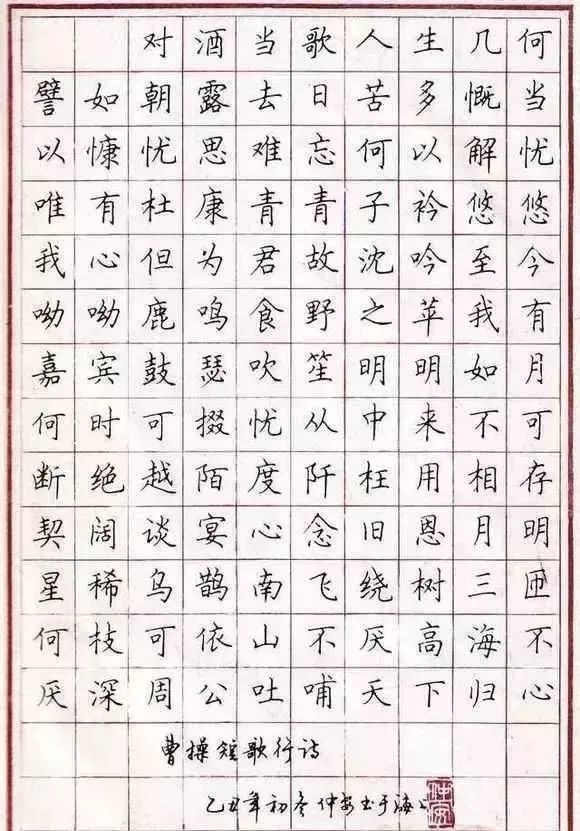 对酒当歌人生几何
譬如朝露去日苦多慨当
以慷忧思难忘何以解忧
唯有杜康青青子衿悠悠
我心但为君故沈吟至今
呦呦鹿鸣食野之苹我有
嘉宾鼓瑟吹笙明明如月
何时可掇忧从中来不可
断绝越陌度阡枉用相存
契阔谈宴心念旧恩月明
星稀乌鹊南飞绕树三匝
何枝可依山不厌高海不
厌深周公吐哺天下归心
曹操短歌行诗
乙丑年初冬仲安书于海